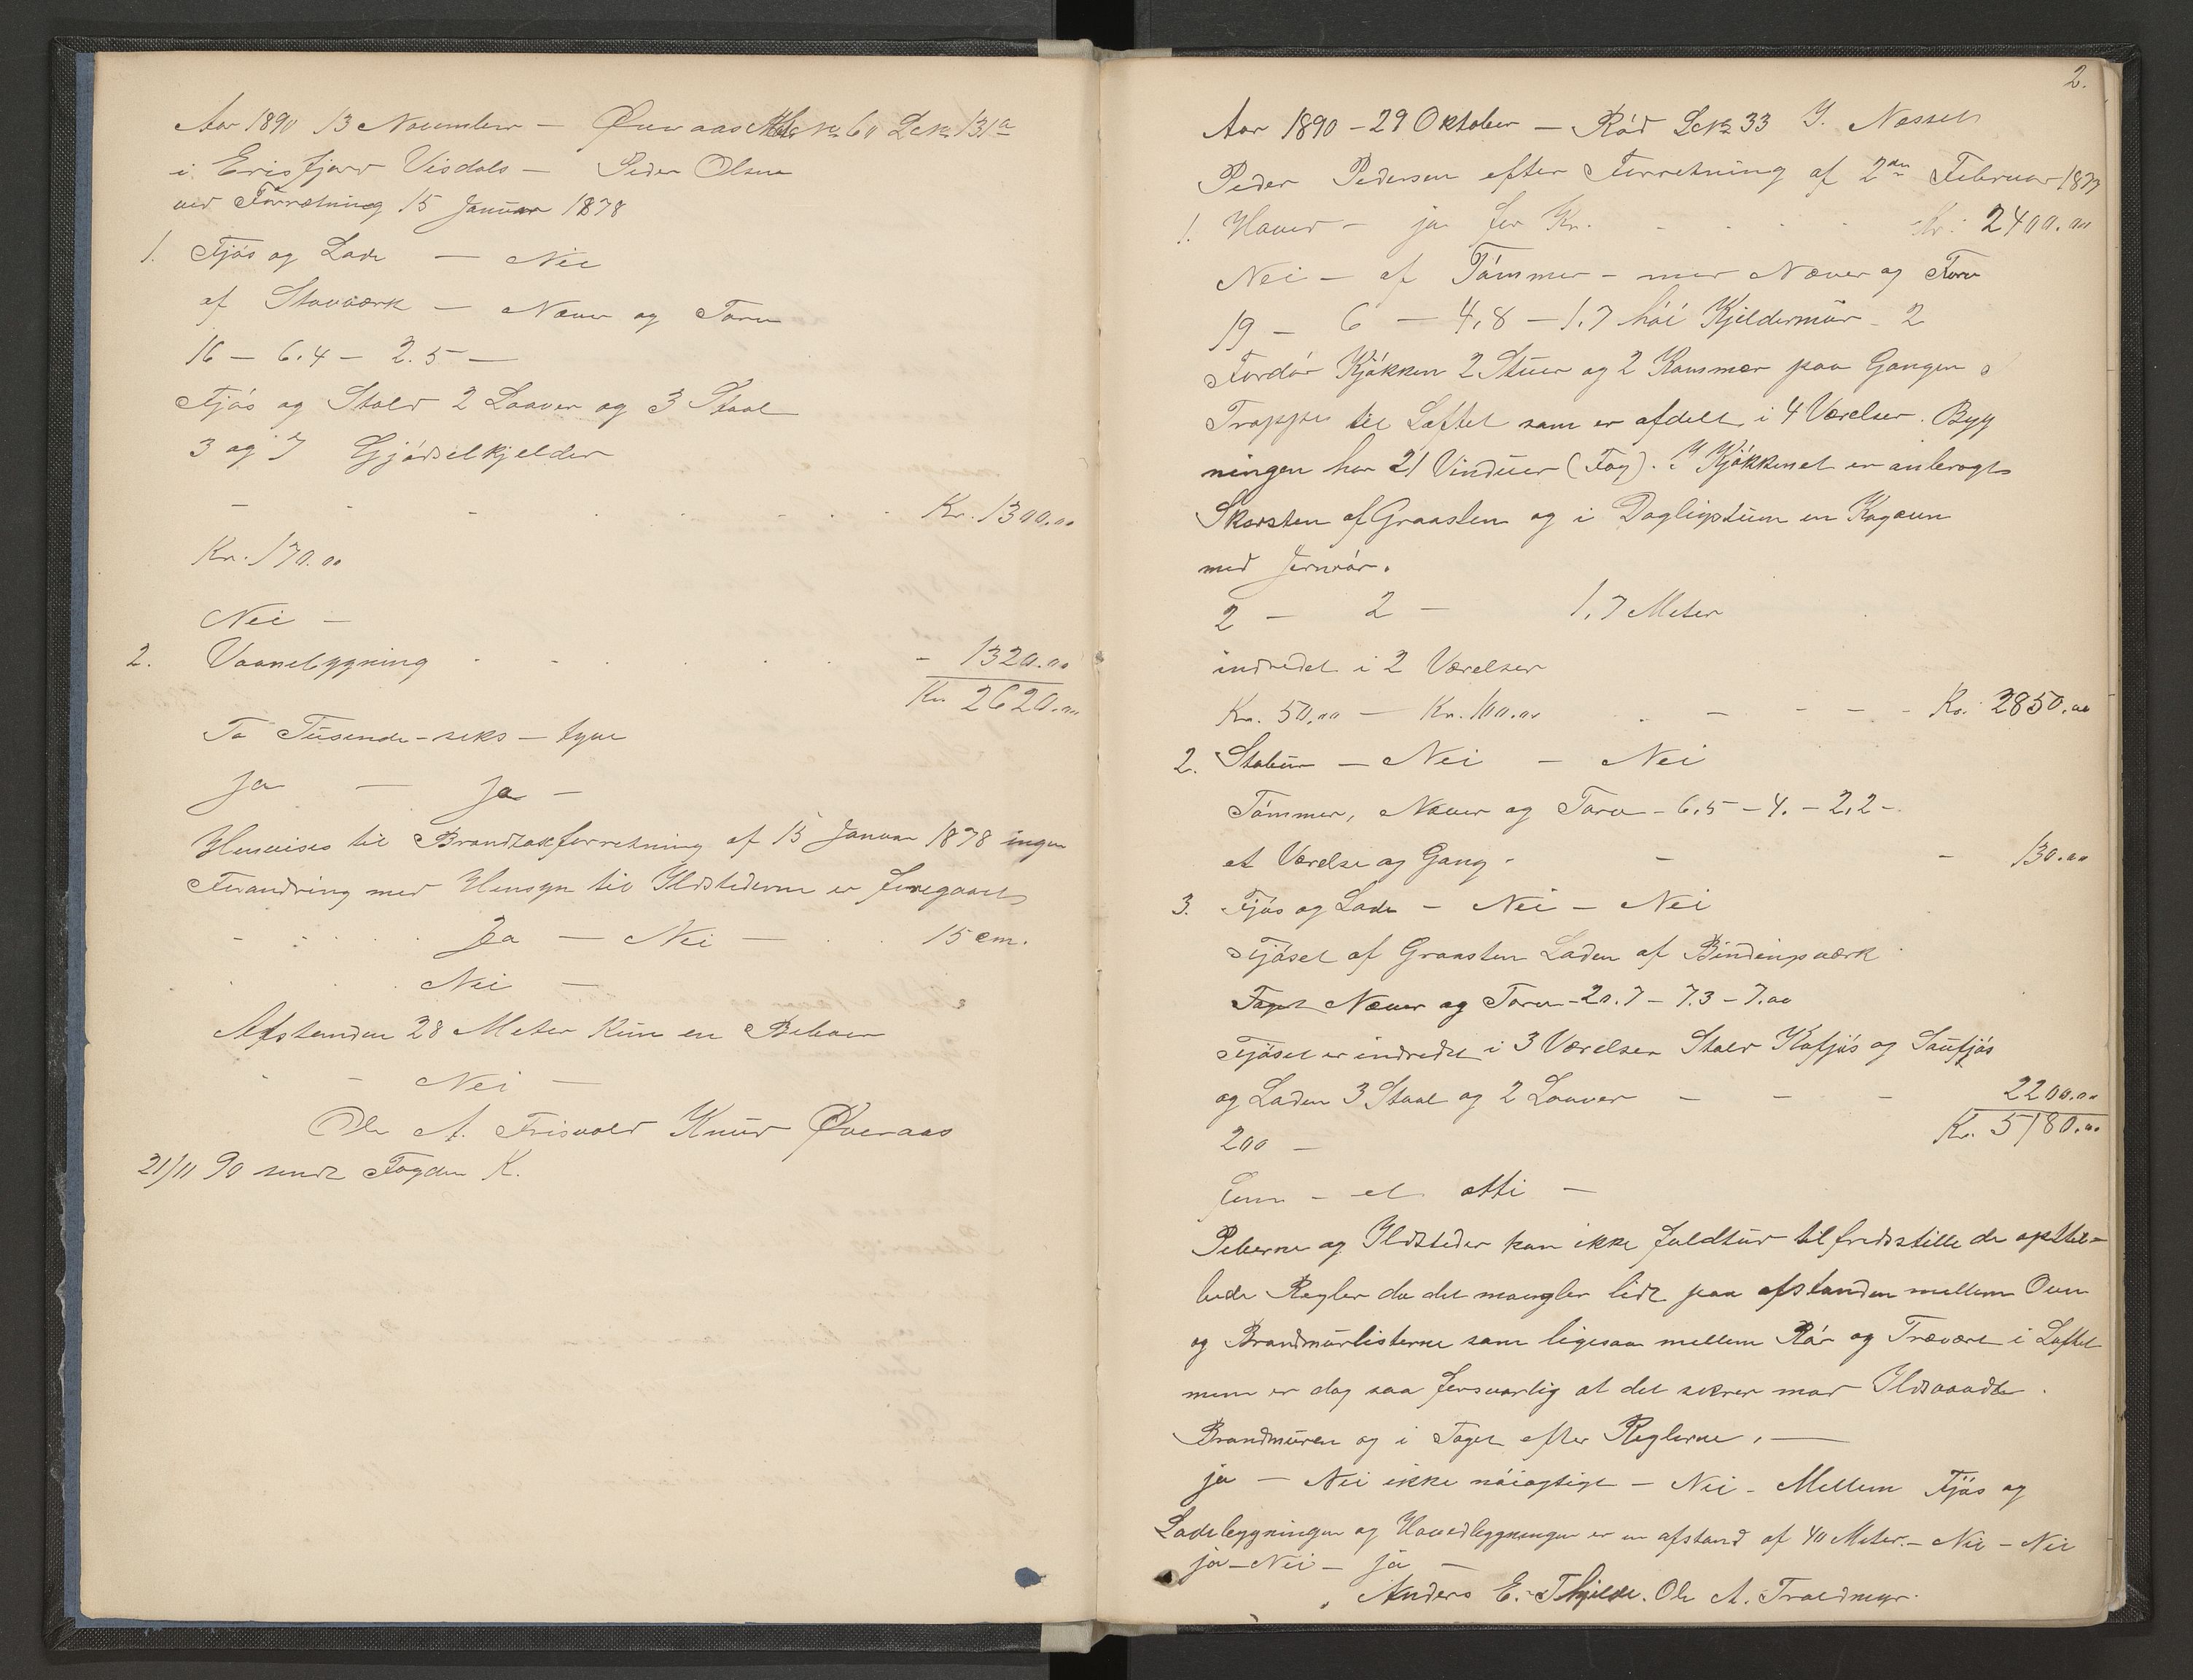 Aar 1890 13 November - Øveraas No 60 Lb No 131a
i Erisfjord Visdals - Peder Olsen
ved Forretning 15 Januar 1878
1. Fjös og Lade - Nei
af Stavværk - Næver og Torv
16 - 6.4 - 2.5 -
Fjös og Stald 2 Laaver og 3 Staal
3 og 7 Gjödselkjelder
- - - - - - Kr. 1300.00
Kr. 170.00
Nei -
2. Vaanebygning - - - - - 1320.00
Kr. 2620.00
To Tusende-seks-tyve
Ja - Ja -
Henvises til Brandtaxforretning af 15 Januar 1878 ingen
Forandring med Hensyn til Ildstederne er foregaaet
- - Ja - Nei - 15 cm.
Nei -
Afstanden 28 Meter kun en Beboer
- - Nei -
Ole A. Frisvold Knud Øveraas
21/11 90 sendt Fogden K.
2.
Aar 1890 - 29 Oktober - Röd Lb No 33 Y. Nesset
Peder Pedersen efter Forretning af 2den Februar 1877
1. Hoved - ja for Kr. - - - Kr. 2400.00
Nei - af Tömmer - med Næver og Torv
19 - 6 - 4,8 - 1,7 höi Kjeldermur - 2
Fordör Kjökken 2 Stuer og 2 Kammer paa Gangen
Trappe til Loftet som er afdelt i 4 Værelser. Byg
ningen har 21 Vinduer (Fag). I Kjökkenet er anbragt
Skorsten af Graasten og i Dagligstuen en Kagovn
med Jernrör.
2 - 2 - 1,7 Meter
indredet i 2 Værelser
Kr. 50.00 - Kr. 100.00 - - - - Kr. 2850.00
2. Stabur - Nei - Nei
Tömmer, Næver og Torv - 6,5 - 4. - 2,2 -
et Værelse og Gang - - - 130.00
3. Fjös og Lade - Nei - Nei
Fjöset af Graasten Laden af Bindingsværk
Taget Næver og Torv - 20.7 - 7.3 - 7.00
Fjöset er indredet i 3 Værelser Stald Kofjös og Saufjös
og Laden 3 Staal og 2 Laaver - - - 2200.00
200 - Kr. 5180.00
fem - et otti -
Peberne og Ildsteder kan ikke fuldtud tilfredsstille de opstil-
lede Regler da det mangler lidt paa afstanden mellem Ovn
og Brandmurlisterne som ligesaa mellem Rör og Træværk i Loftet
men er dog saa forsvarlig at det sikrer mod Ildsvaade.
Brandmuren og i Taget efter Reglerne. -
ja - Nei ikke nöiagtigt - Nei - Mellem Fjös og
Ladebygningen og Hovedbygningen er en afstand af 40 Meter. - Nei - Nei
ja - Nei - ja -
Anders E. Ole A. Troldmyr.